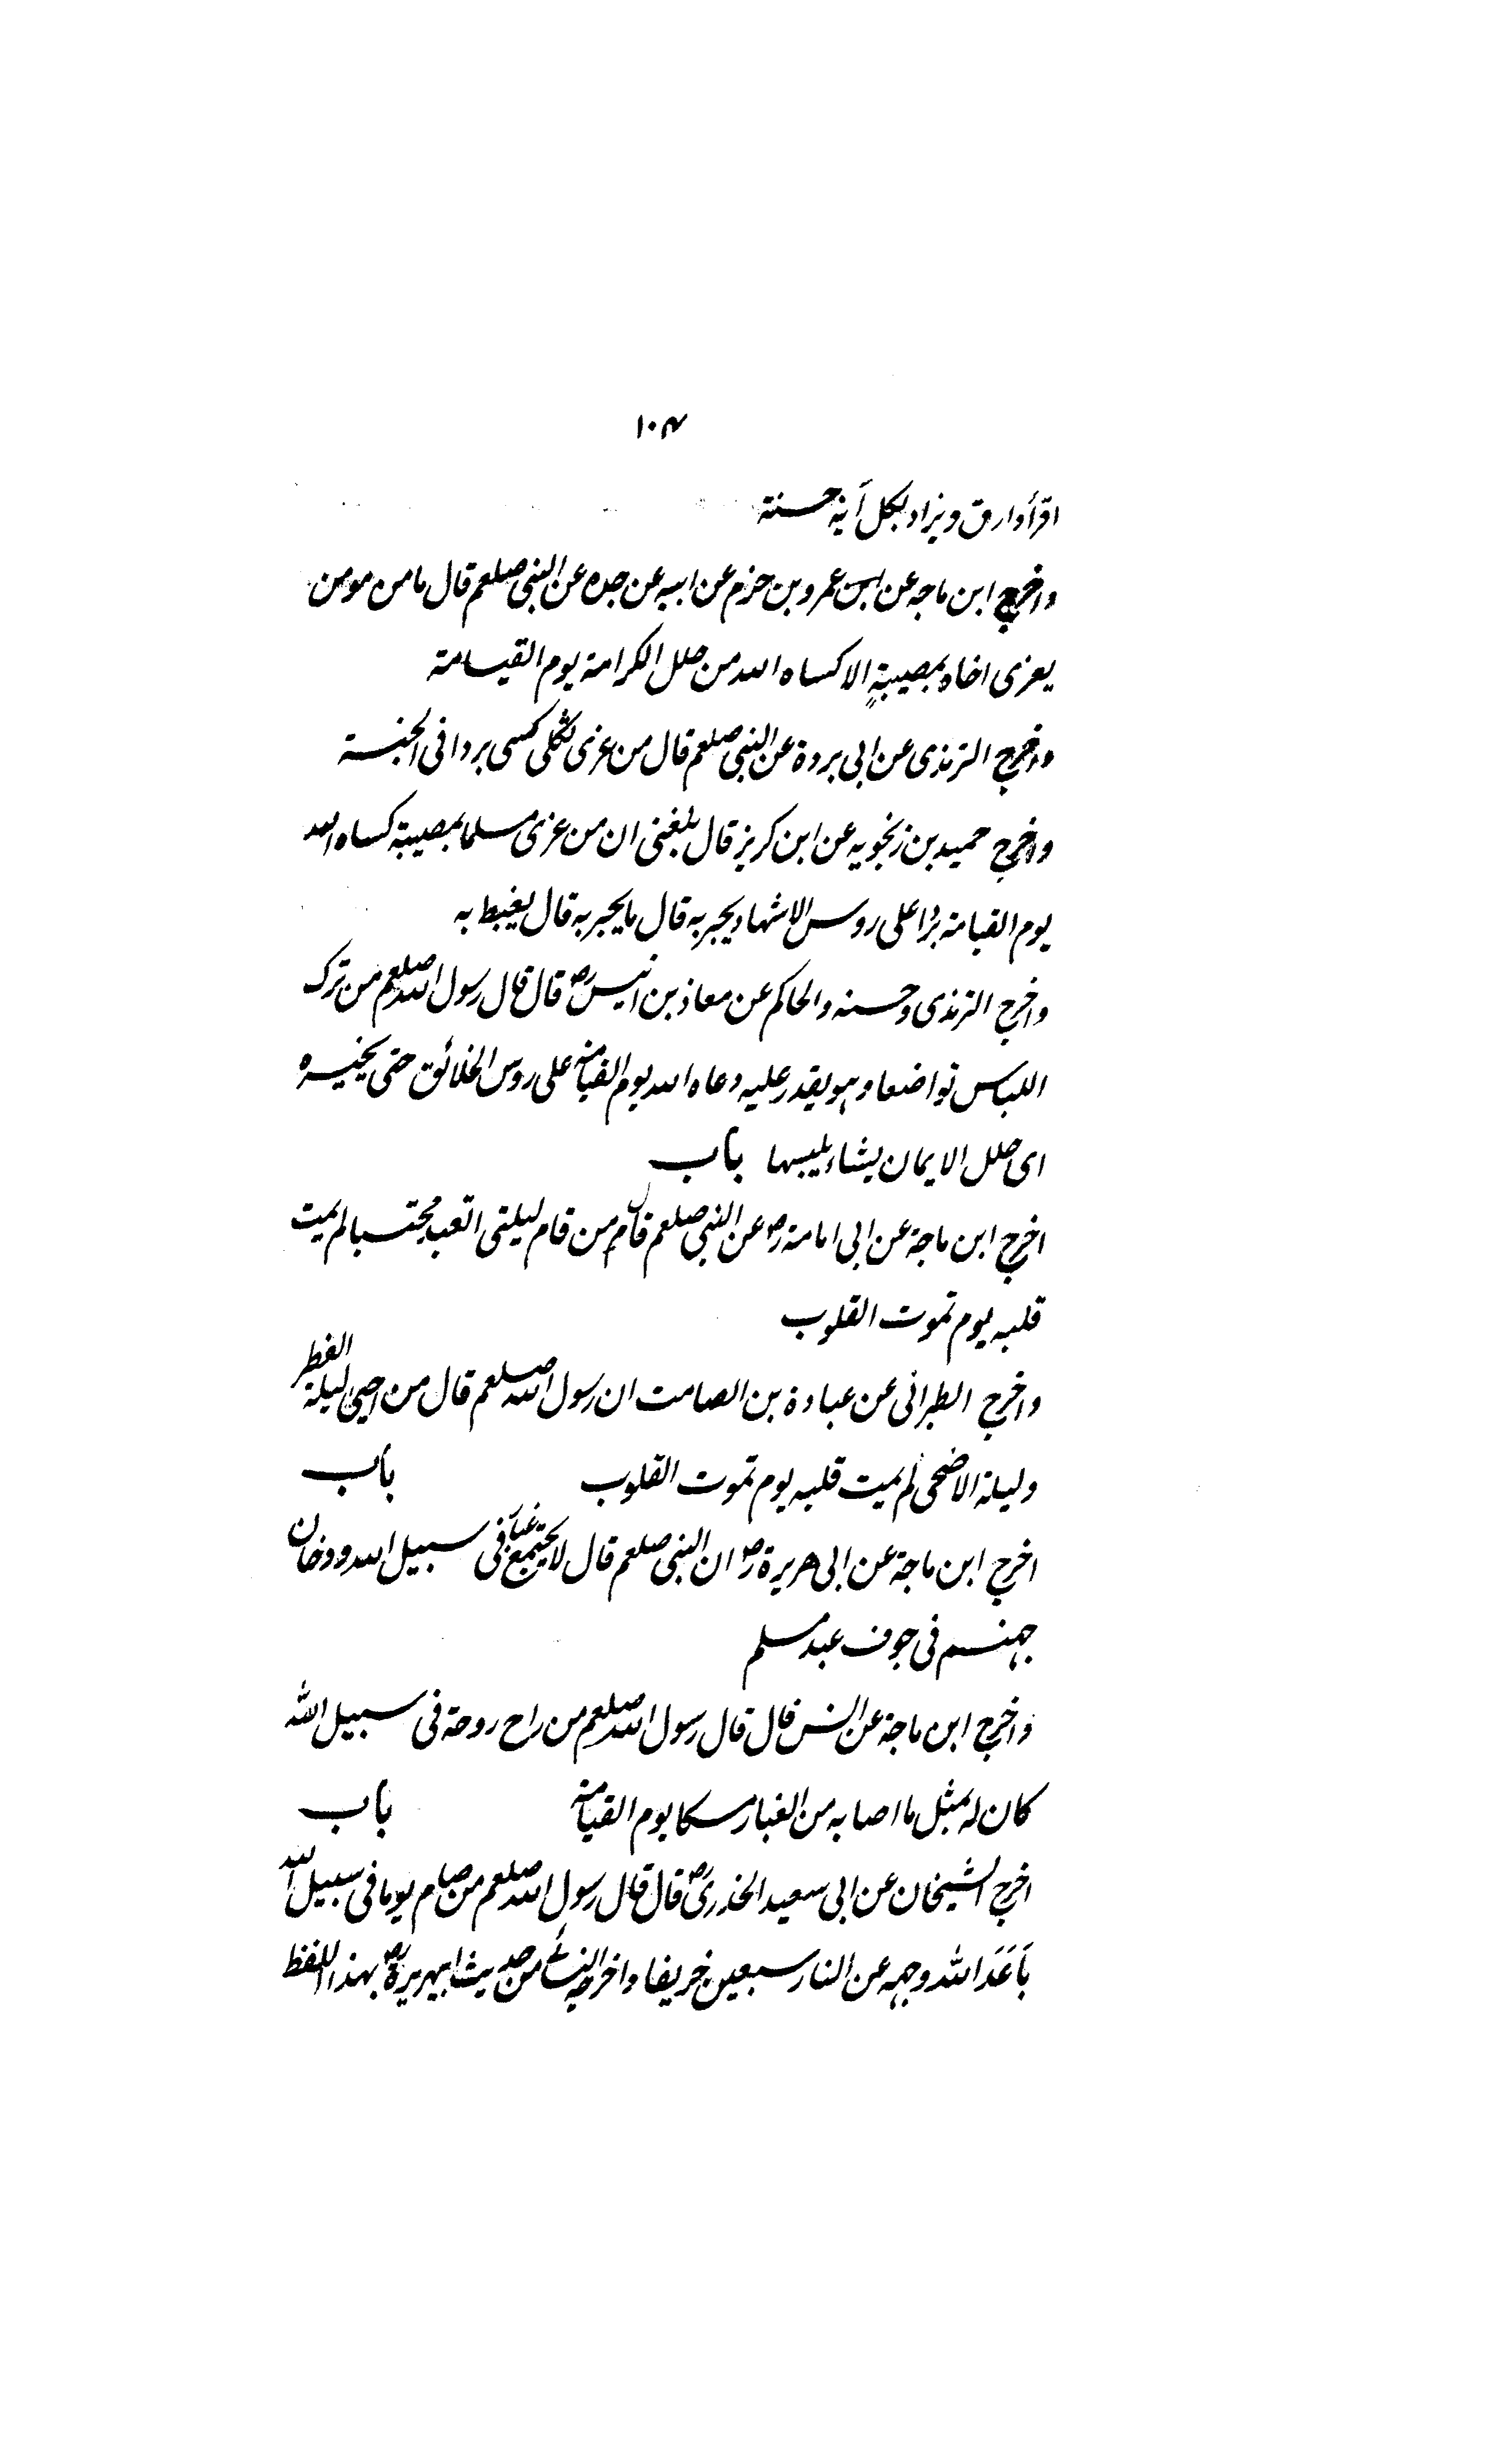 ۱۰۴
اقرأ وارق ویزاد بکل آیة حسنة
واخرج ابن ماجه عن ابن عمرو بن حزم عن ابیه عن جده عن النبی صلعم قال ما من مومن
یعزی اخاه بمصیبةٍ الا کساه الله من حلل الکرامة یوم القیامة
واخرج الترمذی عن ابی بردة عن النبی صلعم قال من عزی ثکلی کسی بردا فی الجنة
واخرج حمید بن زنجویه عن ابن کریز قال بلغنی ان من عزی مسلما بمصیبة کساه الله
یوم القیامة بردا علی روس الاشهاد یحبر به قال ما یحبر به قال یغبط به
واخرج الترمذی وحسنه والحاکم عن معاذ بن انیس رض قال قال رسول الله صلعم من ترک
اللباس تواضعا وهو یقدر علیه دعاه الله یوم القیامة علی روس الخلائق حتی یخیره
ای حلل الایمان یشاء یلبسها باب
اخرج ابن ماجة عن ابی امامة رض عن النبی صلعم قال من قام لیلتی العید محتسبا لم یمت
قلبه یوم تموت القلوب
واخرج الطبرانی عن عبادة بن الصامت ان رسول الله صلعم قال من احیی لیلة الفطر
ولیلة الاضحی لم یمت قلبه یوم تموت القلوب باب
اخرج ابن ماجة عن ابی هریرة رض ان النبی صلعم قال لا یجتمع غبار فی سبیل الله ودخان
جهنم فی جوف عبد مسلم
واخرج ابن ماجة عن انس قال قال رسول الله صلعم من راح روحة فی سبیل الله
کان له بمثل ما اصابه من الغبار مسکا یوم القیامة باب
اخرج الشیخان عن ابی سعید الخدری رض قال قال رسول الله صلعم من صام یوما فی سبیل الله
بَاعَدَ الله وجهه عن النار سبعین خریفا واخرجه النسائی من حدیث ابیهریرة رض بهذا اللفظ